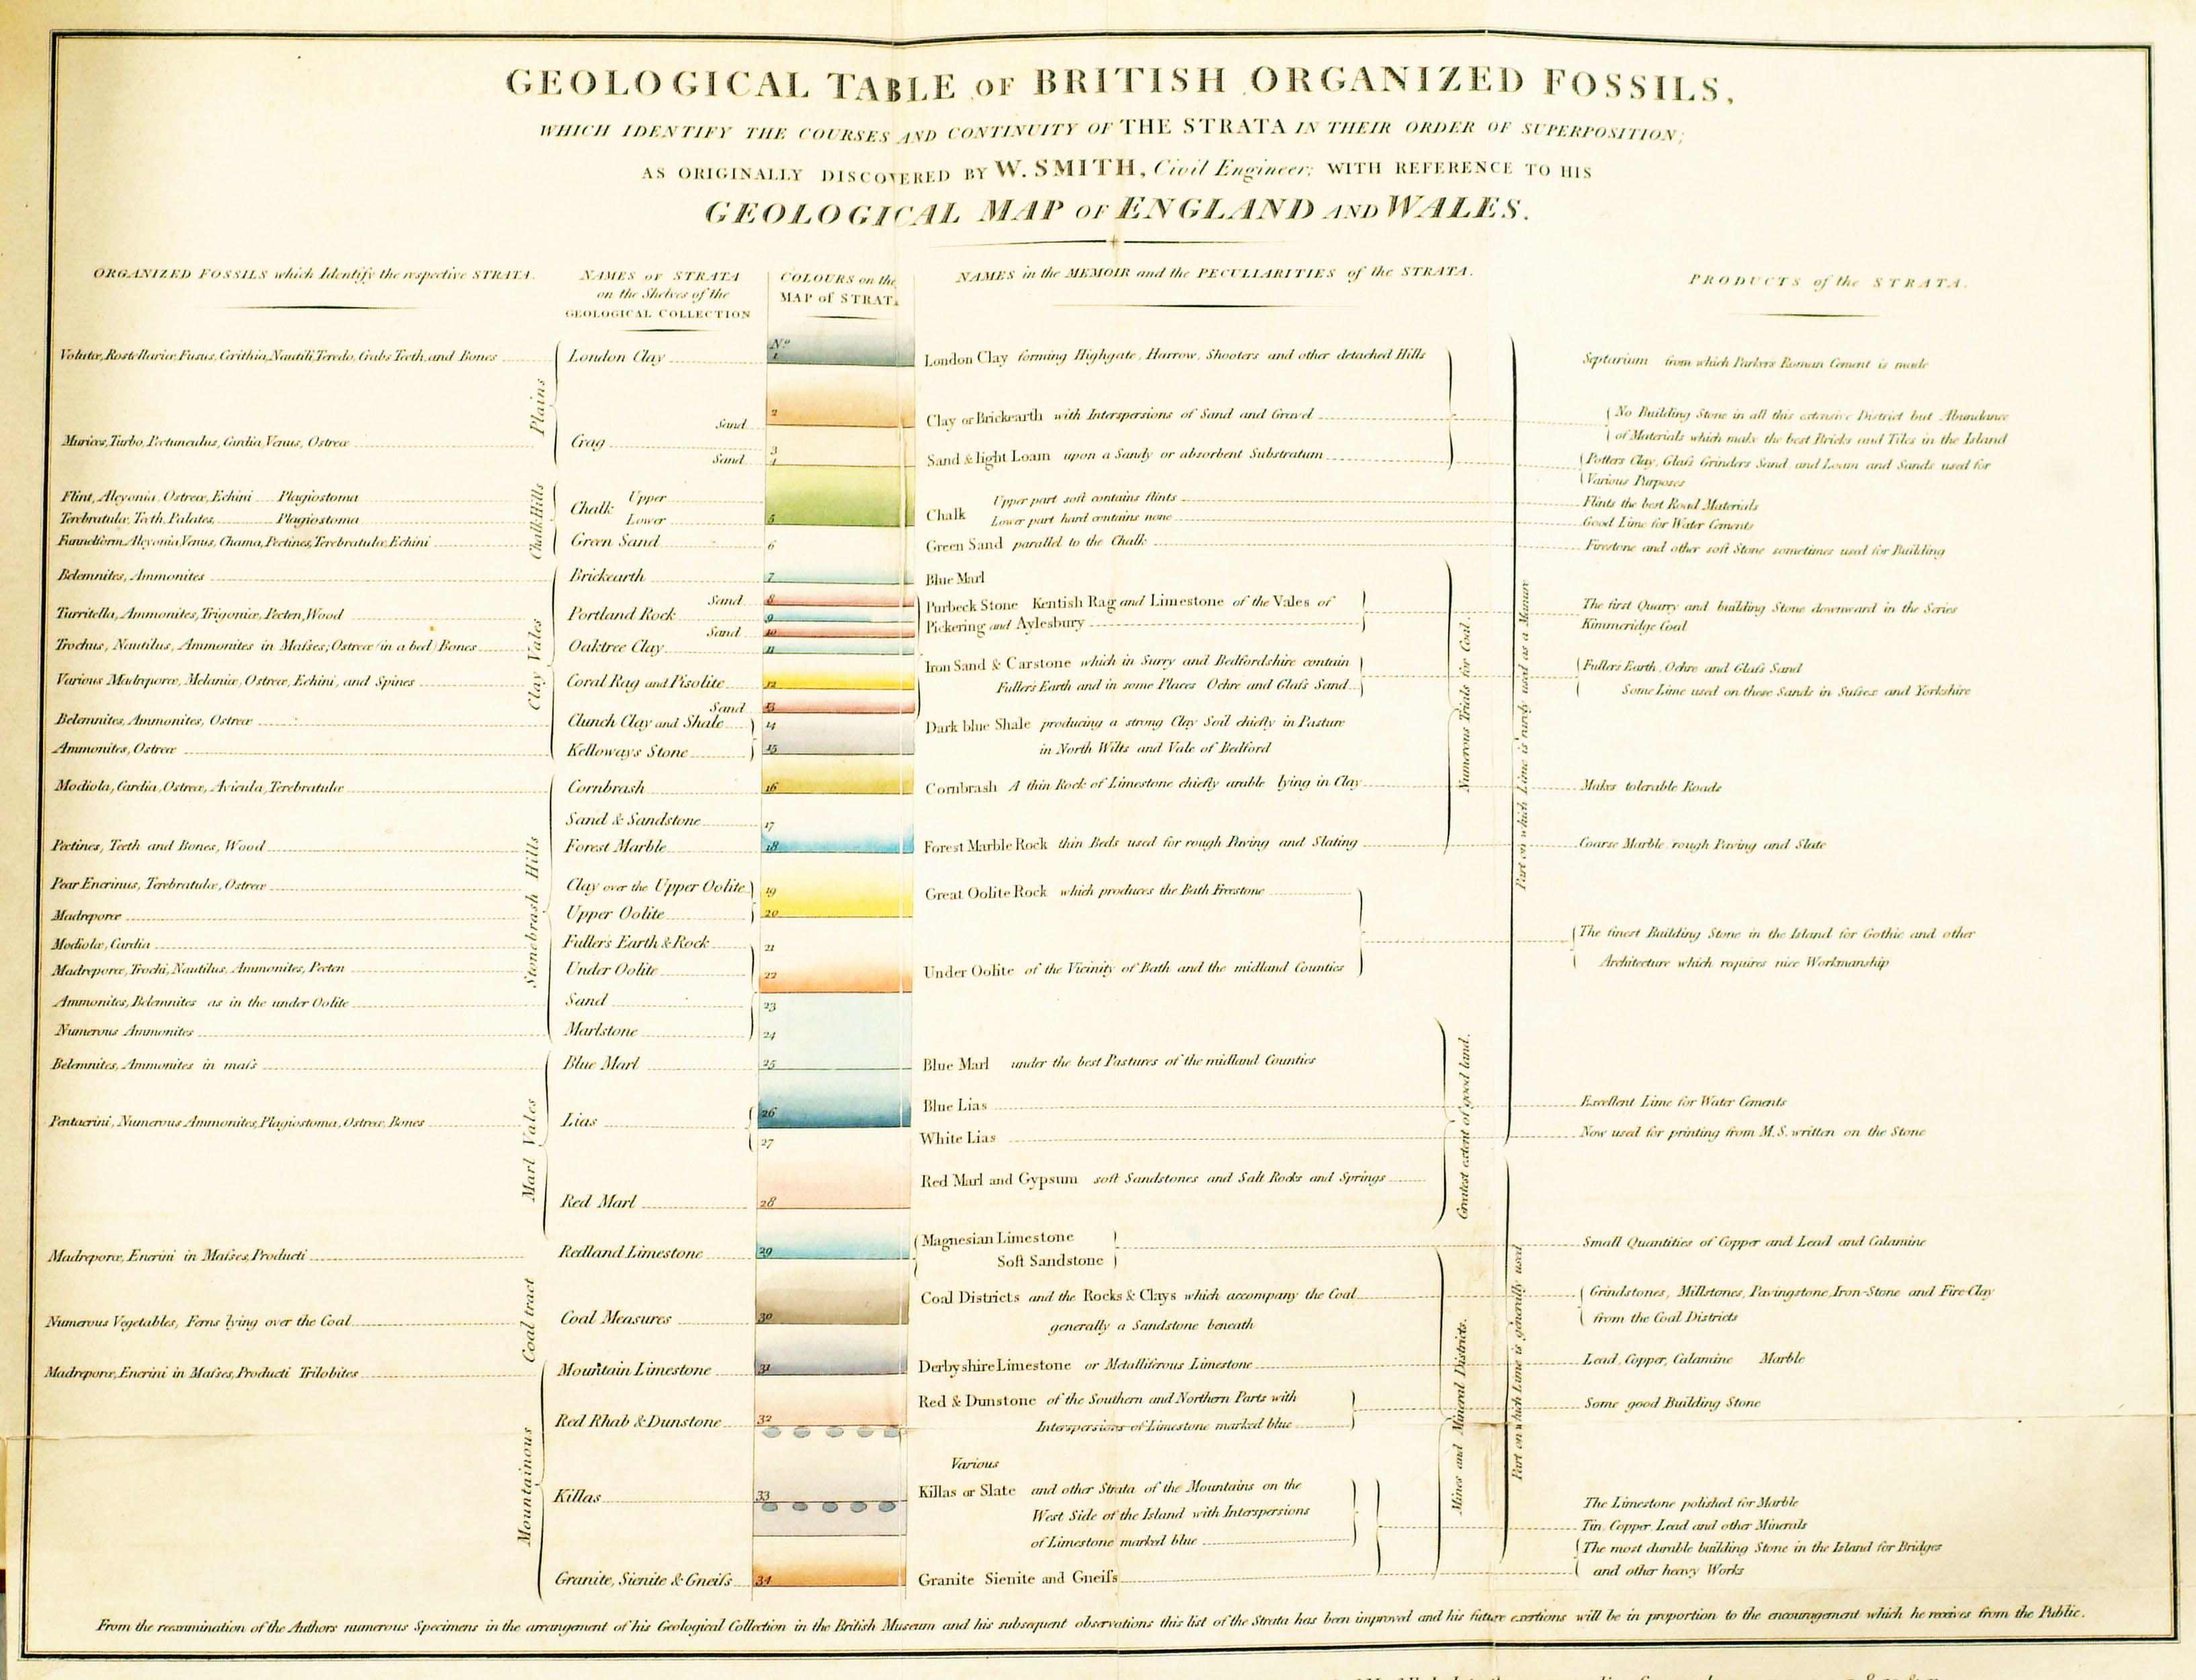 GEOLOGICAL TABLE OF BRITISH ORGANIZED FOSSILS,
WHICH IDENTIFY THE COURSES AND CONTINUITY OF THE STRATA IN THEIR ORDER OF SUPERPOSITION;
AS ORIGINALLY DISCOVERED BY W. SMITH, Civil Engineer; WITH REFERENCE TO HIS
GEOLOGICAL MAP OF ENGLAND AND WALES.
ORGANIZED FOSSILS which Identify the respective STRATA.
Volutæ, Rostellariæ, Fusus, Cerithia, Nautili, Teredo, Crabs Teeth, and Bones
Murices, Turbo, Pectunculus, Cardia, Venus, Ostreæ
Flint, Alcyonia, Ostreæ, Echini Plagiostoma
Terebratulæ, Teeth, Palates, Plagiostoma
Funnelform Alcyonia, Venus, Chama, Pectines, Terebratulæ, Echini
Belemnites, Ammonites
Turritella, Ammonites, Trigoniæ, Pecten, Wood
Trochus, Nautilus, Ammonites in Maſses, Ostreæ (in a bed) Bones
Various Madreporæ, Melaniæ, Ostreæ, Echini, and Spines
Belemnites, Ammonites, Ostreæ
Ammonites, Ostreæ
Modiola, Cardia, Ostreæ, Avicula, Terebratulæ
Pectines, Teeth and Bones, Wood
Pear Encrinus, Terebratulæ, Ostreæ
Madreporæ
Modiolæ, Cardia
Madreporæ, Trochi, Nautilus, Ammonites, Pecten
Ammonites, Belemnites as in the under Oolite
Numerous Ammonites
Belemnites, Ammonites in maſs
Pentacrini, Numerous Ammonites, Plagiostoma, Ostreæ, Bones
Madreporæ, Encrini in Maſses, Producti
Numerous Vegetables, Ferns lying over the Coal
Madreporæ, Encrini in Maſses, Producti Trilobites
Plains
Chalk Hills
Clay Vales
Stonebrash Hills
Marl Vales
Coal tract
Mountainous
NAMES OF STRATA
on the Shelves of the
GEOLOGICAL COLLECTION
London Clay
Sand
Crag
Sand
Chalk Upper
Lower
Green Sand
Brickearth
Sand
Portland Rock
Sand
Oaktree Clay
Coral Rag and Pisolite
Sand
Clunch Clay and Shale
Kelloways Stone
Cornbrash
Sand & Sandstone
Forest Marble
Clay over the Upper Oolite
Upper Oolite
Fuller's Earth & Rock
Under Oolite
Sand
Marlstone
Blue Marl
Lias
Red Marl
Redland Limestone
Coal Measures
Mountain Limestone
Red Rhab & Dunstone
Killas
Granite, Sienite & Gneiſs
COLOURS on the
MAP of STRATA
No.
1
2
3
4
5
6
7
8
9
10
11
12
13
14
15
16
17
18
19
20
21
22
23
24
25
26
27
28
29
30
31
32
33
34
NAMES in the MEMOIR and the PECULIARITIES of the STRATA.
London Clay forming Highgate, Harrow, Shooters and other detached Hills
Clay or Brickearth with Interspersions of Sand and Gravel
Sand & light Loam upon a Sandy or absorbent Substratum
Chalk Upper part soft contains flints
Lower part hard contains none
Green Sand parallel to the Chalk
Blue Marl
Purbeck Stone Kentish Rag and Limestone of the Vales of
Pickering and Aylesbury
Iron Sand & Carstone which in Surry and Bedfordshire contain
Fullers Earth and in some Places Ochre and Glaſs Sand
Dark blue Shale producing a strong Clay Soil chiefly in Pasture
in North Wilts and Vale of Bedford
Cornbrash A thin Rock of Limestone chiefly arable lying in Clay
Forest Marble Rock thin Beds used for rough Paving and Slating
Great Oolite Rock which produces the Bath Freestone
Under Oolite of the Vicinity of Bath and the midland Counties
Blue Marl under the best Pastures of the midland Counties
Blue Lias
White Lias
Red Marl and Gypsum soft Sandstones and Salt Rocks and Springs
Magnesian Limestone
Soft Sandstone
Coal Districts and the Rocks & Clays which accompany the Coal
generally a Sandstone beneath
Derbyshire Limestone or Metalliferous Limestone
Red & Dunstone of the Southern and Northern Parts with
Interspersions of Limestone marked blue
Various
Killas or Slate and other Strata of the Mountains on the
West Side of the Island with Interspersions
of Limestone marked blue
Granite Sienite and Gneiſs
Numerous Trials for Coal.
Greatest extent of good land.
Mines and Mineral Districts.
Part on which Lime is rarely used as a Manure
Part on which Lime is generally used
PRODUCTS of the STRATA.
Septarium from which Parkers Roman Cement is made
No Building Stone in all this extensive District but Abundance
of Materials which make the best Bricks and Tiles in the Island
Potters Clay, Glaſs Grinders Sand and Loam and Sands used for
Various Purposes
Flints the best Road Materials
Good Lime for Water Cements
Firestone and other soft Stone sometimes used for Building
The first Quarry and building Stone downward in the Series
Kimmeridge Coal
Fullers Earth, Ochre and Glaſs Sand
Some Lime used on these Sands in Suſsex and Yorkshire
Makes tolerable Roads
Coarse Marble rough Paving and Slate
The finest Building Stone in the Island for Gothic and other
Architecture which requires nice Workmanship
Excellent Lime for Water Cements
Now used for printing from M.S. written on the Stone
Small Quantities of Copper and Lead and Calamine
Grindstones, Millstones, Pavingstone, Iron-Stone and Fire Clay
from the Coal Districts
Lead, Copper, Calamine Marble
Some good Building Stone
The Limestone polished for Marble
Tin, Copper, Lead and other Minerals
The most durable building Stone in the Island for Bridges
and other heavy Works
From the reexamination of the Authors numerous Specimens in the arrangement of his Geological Collection in the British Museum and his subsequent observations this list of the Strata has been improved and his future exertions will be in proportion to the encouragement which he receives from the Public.